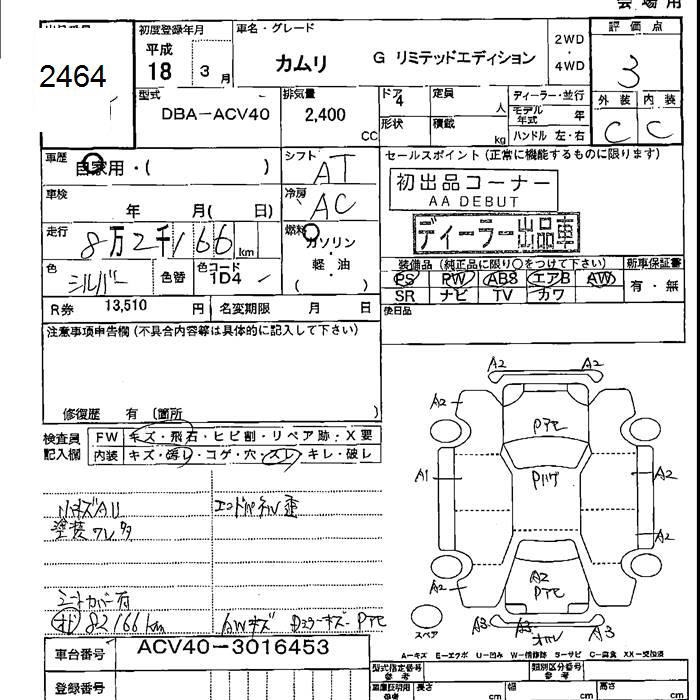 2464
初度登録年月
平成
18 3 月
車名・グレード
カムリ G リミテッドエディション
2WD
・
4WD
評価点
3
型式
DBA-ACV40
排気量
2,400
CC
ドア
4
定員
人
形状
積載
kg
ディーラー・並行
モデル年式 年
ハンドル 左・右
外装 内装
C C
車歴
自家用・( )
シフト
AT
車検
年 月( 日)
冷房
AC
走行
8万2千166 km
燃料
ガソリン・
軽・油
( )
色
シルバー
色替
色コード
1D4
R券 13,510 円
名変期限 月 日
セールスポイント(正常に機能するものに限ります)
初出品コーナー
AA DEBUT
ディーラー出品車
装備品(純正品に限り○をつけて下さい)
新車保証書
PS PW ABS エアB AW
SR ナビ TV カワ
有・無
後日品
注意事項申告欄(不具合内容等は具体的に記入して下さい)
修復歴 有 (箇所 )
検査員
記入欄
FW キズ・飛石・ヒビ割・リペア跡・X要
内装 キズ・汚レ・コゲ・穴・スレ・キレ・破レ
塗装ワレ
シートカバー有
82166km
AWキズ
A2 A2
A2 A2
A1 A2
A2
A2
A2 A2
A3 A3 A3
スペア
A-キズ E-エクボ U-凹み
車台番号 ACV40-3016453
登録番号
型式指定番号
参考
類別区分番号
参考
長さ cm 幅 cm 高さ cm